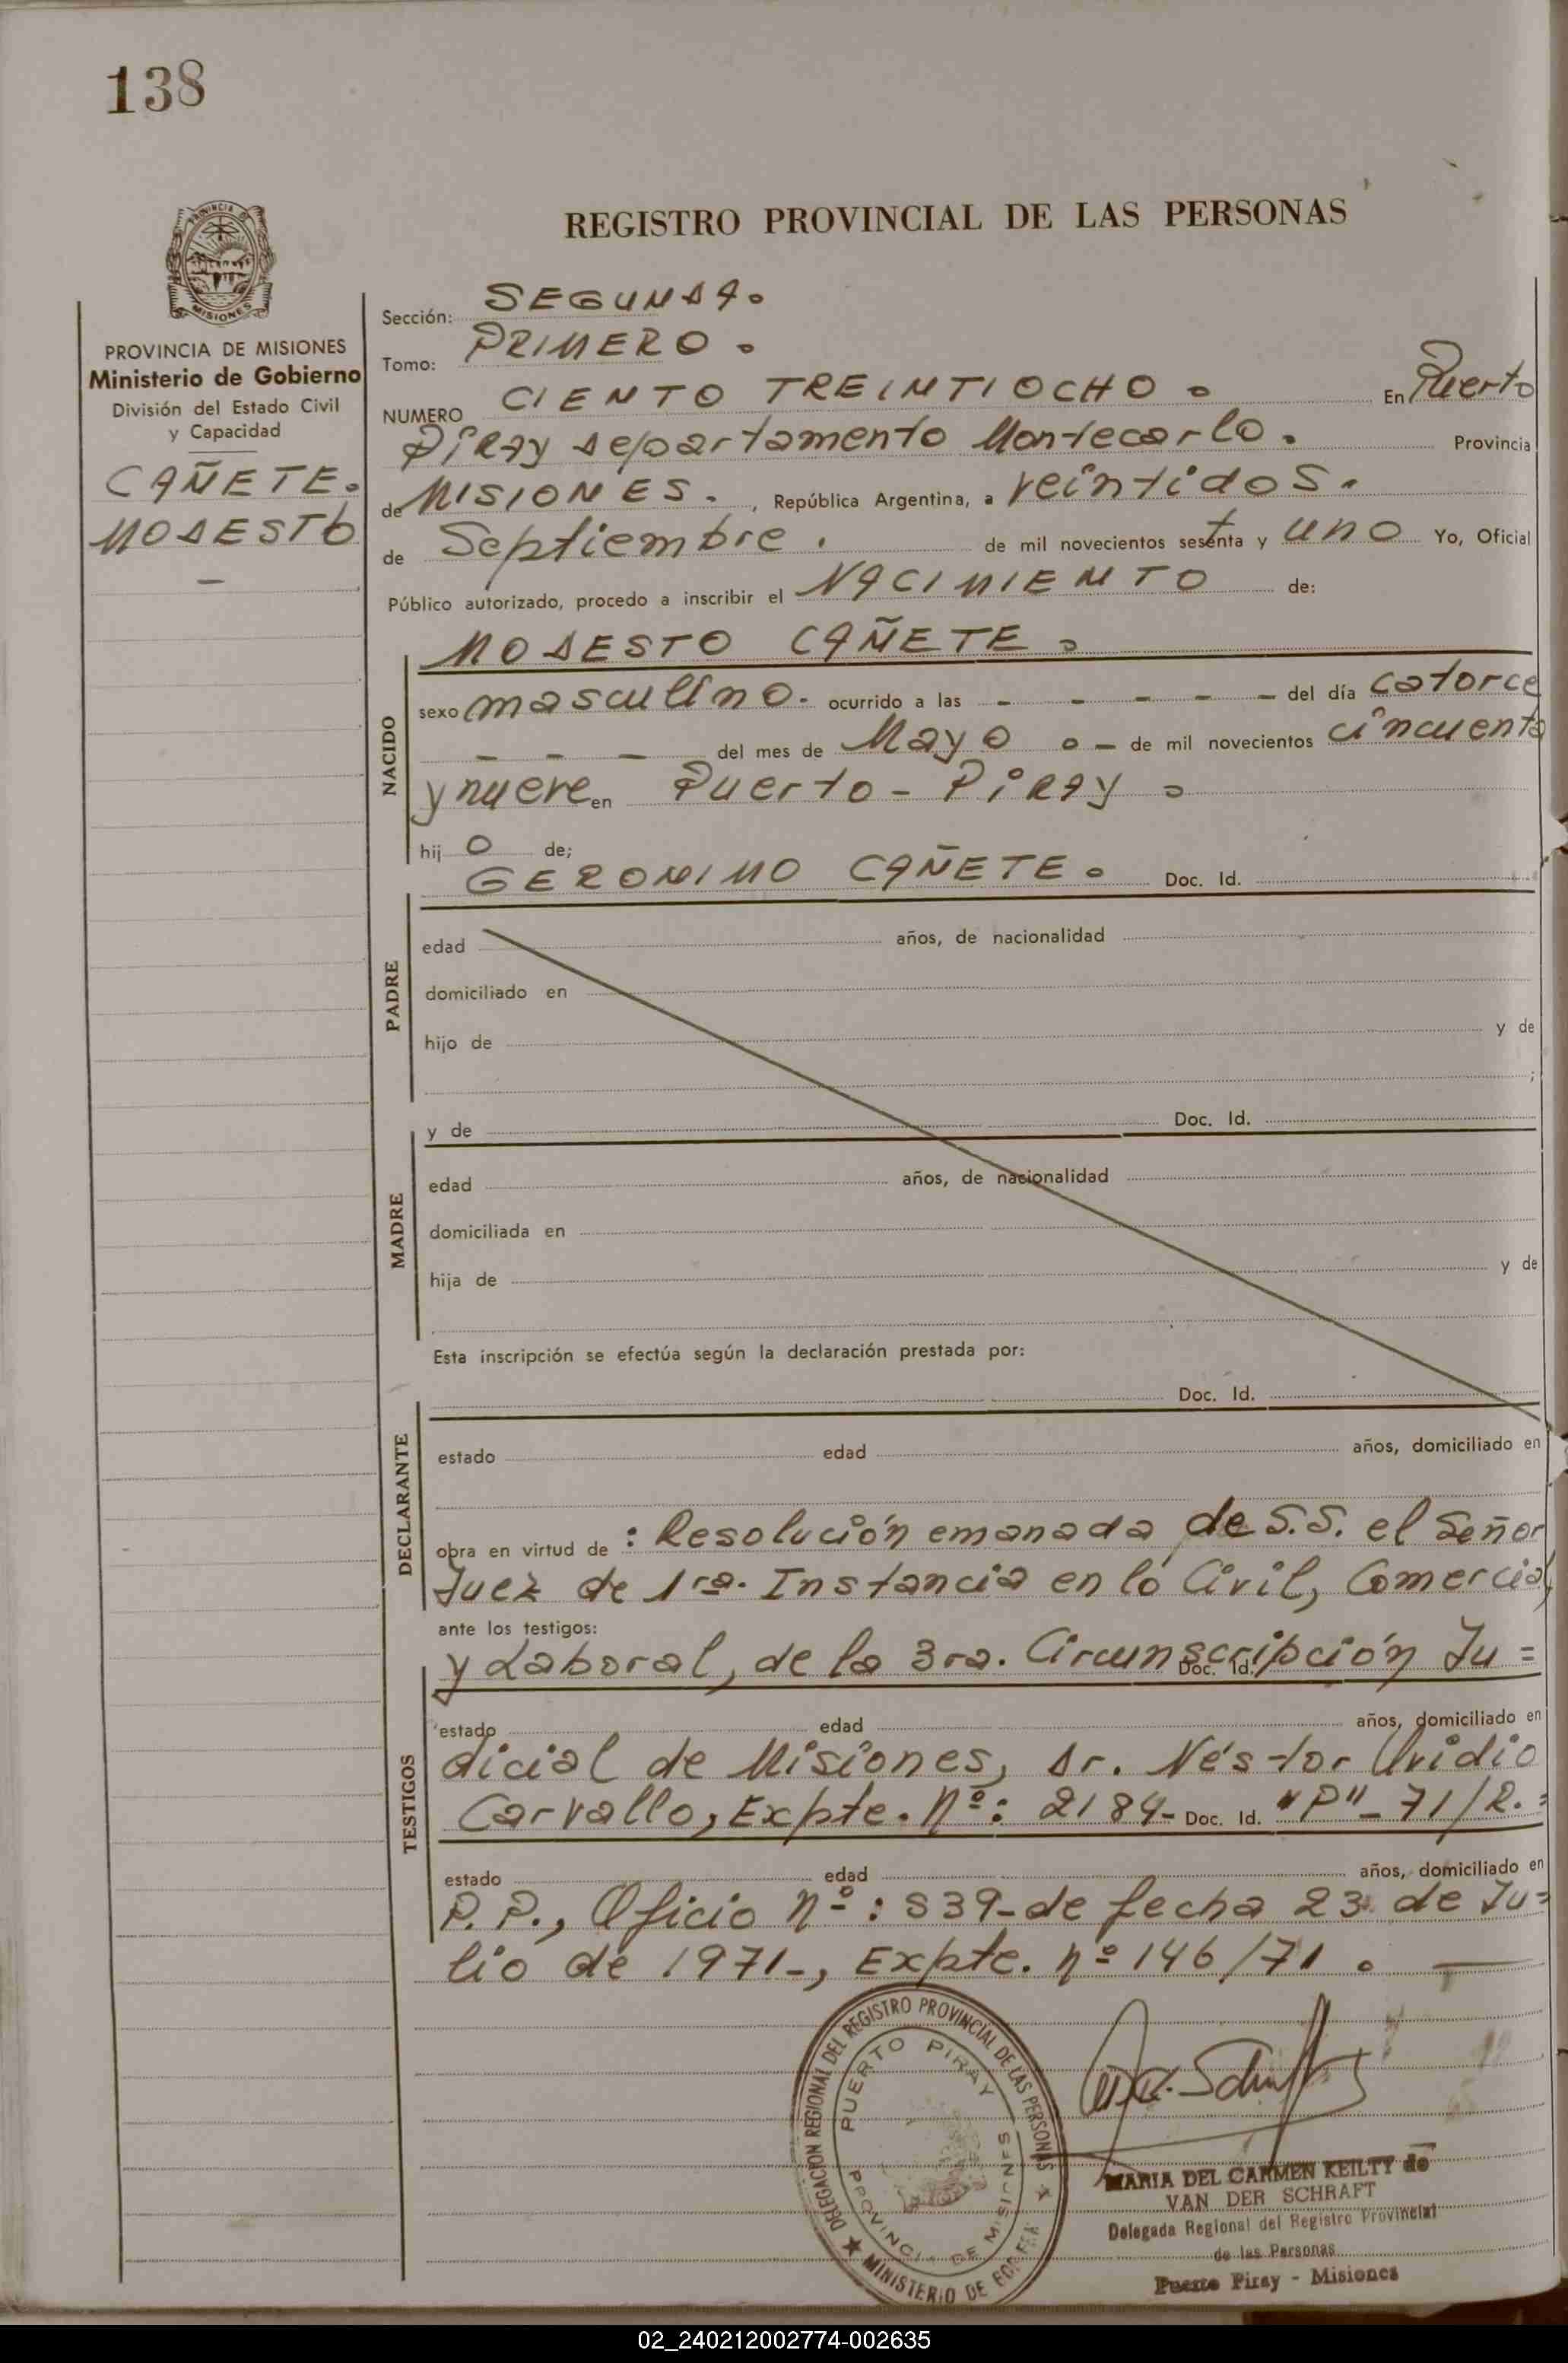 138
REGISTRO PROVINCIAL DE LAS PERSONAS
PROVINCIA DE MISIONES
MISIONES
PROVINCIA DE MISIONES
Ministerio de Gobierno
División del Estado Civil
y Capacidad
CAÑETE.
MODESTO
Sección: SEGUNDA.
Tomo: PRIMERO.
NUMERO CIENTO TREINTIOCHO. En Puerto
PIRAY departamento Montecarlo. Provincia
de MISIONES. , República Argentina, a veintidos.
de Septiembre. de mil novecientos sesenta y uno Yo, Oficial
Público autorizado, procedo a inscribir el NACIMIENTO de:
NACIDO
MODESTO CAÑETE.
sexo masculino. ocurrido a las - - - - - del día catorce
- - - del mes de Mayo . - de mil novecientos cincuenta
y nueve en Puerto - PiRAY.
hij o de;
GERONIMO CAÑETE. Doc. Id.
PADRE
edad años, de nacionalidad
domiciliado en
hijo de y de
;
y de Doc. Id.
MADRE
edad años, de nacionalidad
domiciliada en
hija de y de
Esta inscripción se efectúa según la declaración prestada por:
Doc. Id.
DECLARANTE
estado edad años, domiciliado en
obra en virtud de : Resolución emanada de S.S. el Señor
Juez de 1ra. Instancia en lo Civil, Comercial,
ante los testigos:
y Laboral, de la 3ra. Circunscripción Ju=
Doc. Id.
TESTIGOS
estado edad años, domiciliado en
dicial de Misiones, Dr. Néstor Ovidio
Carvallo, Expte. Nº: 2184- Doc. Id. "P"- 71/R.=
estado edad años, domiciliado en
P.P., Oficio nº: 839- de fecha 23 de Ju=
lio de 1971-, Expte. nº 146/71. —
DELEGACION REGIONAL DEL REGISTRO PROVINCIAL DE LAS PERSONAS
PUERTO PIRAY
PROVINCIA DE MISIONES
MINISTERIO DE
MARIA DEL CARMEN KEILTY de
VAN DER SCHRAFT
Delegada Regional del Registro Provincial
de las Personas
Puerto Piray - Misiones
02_240212002774-002635